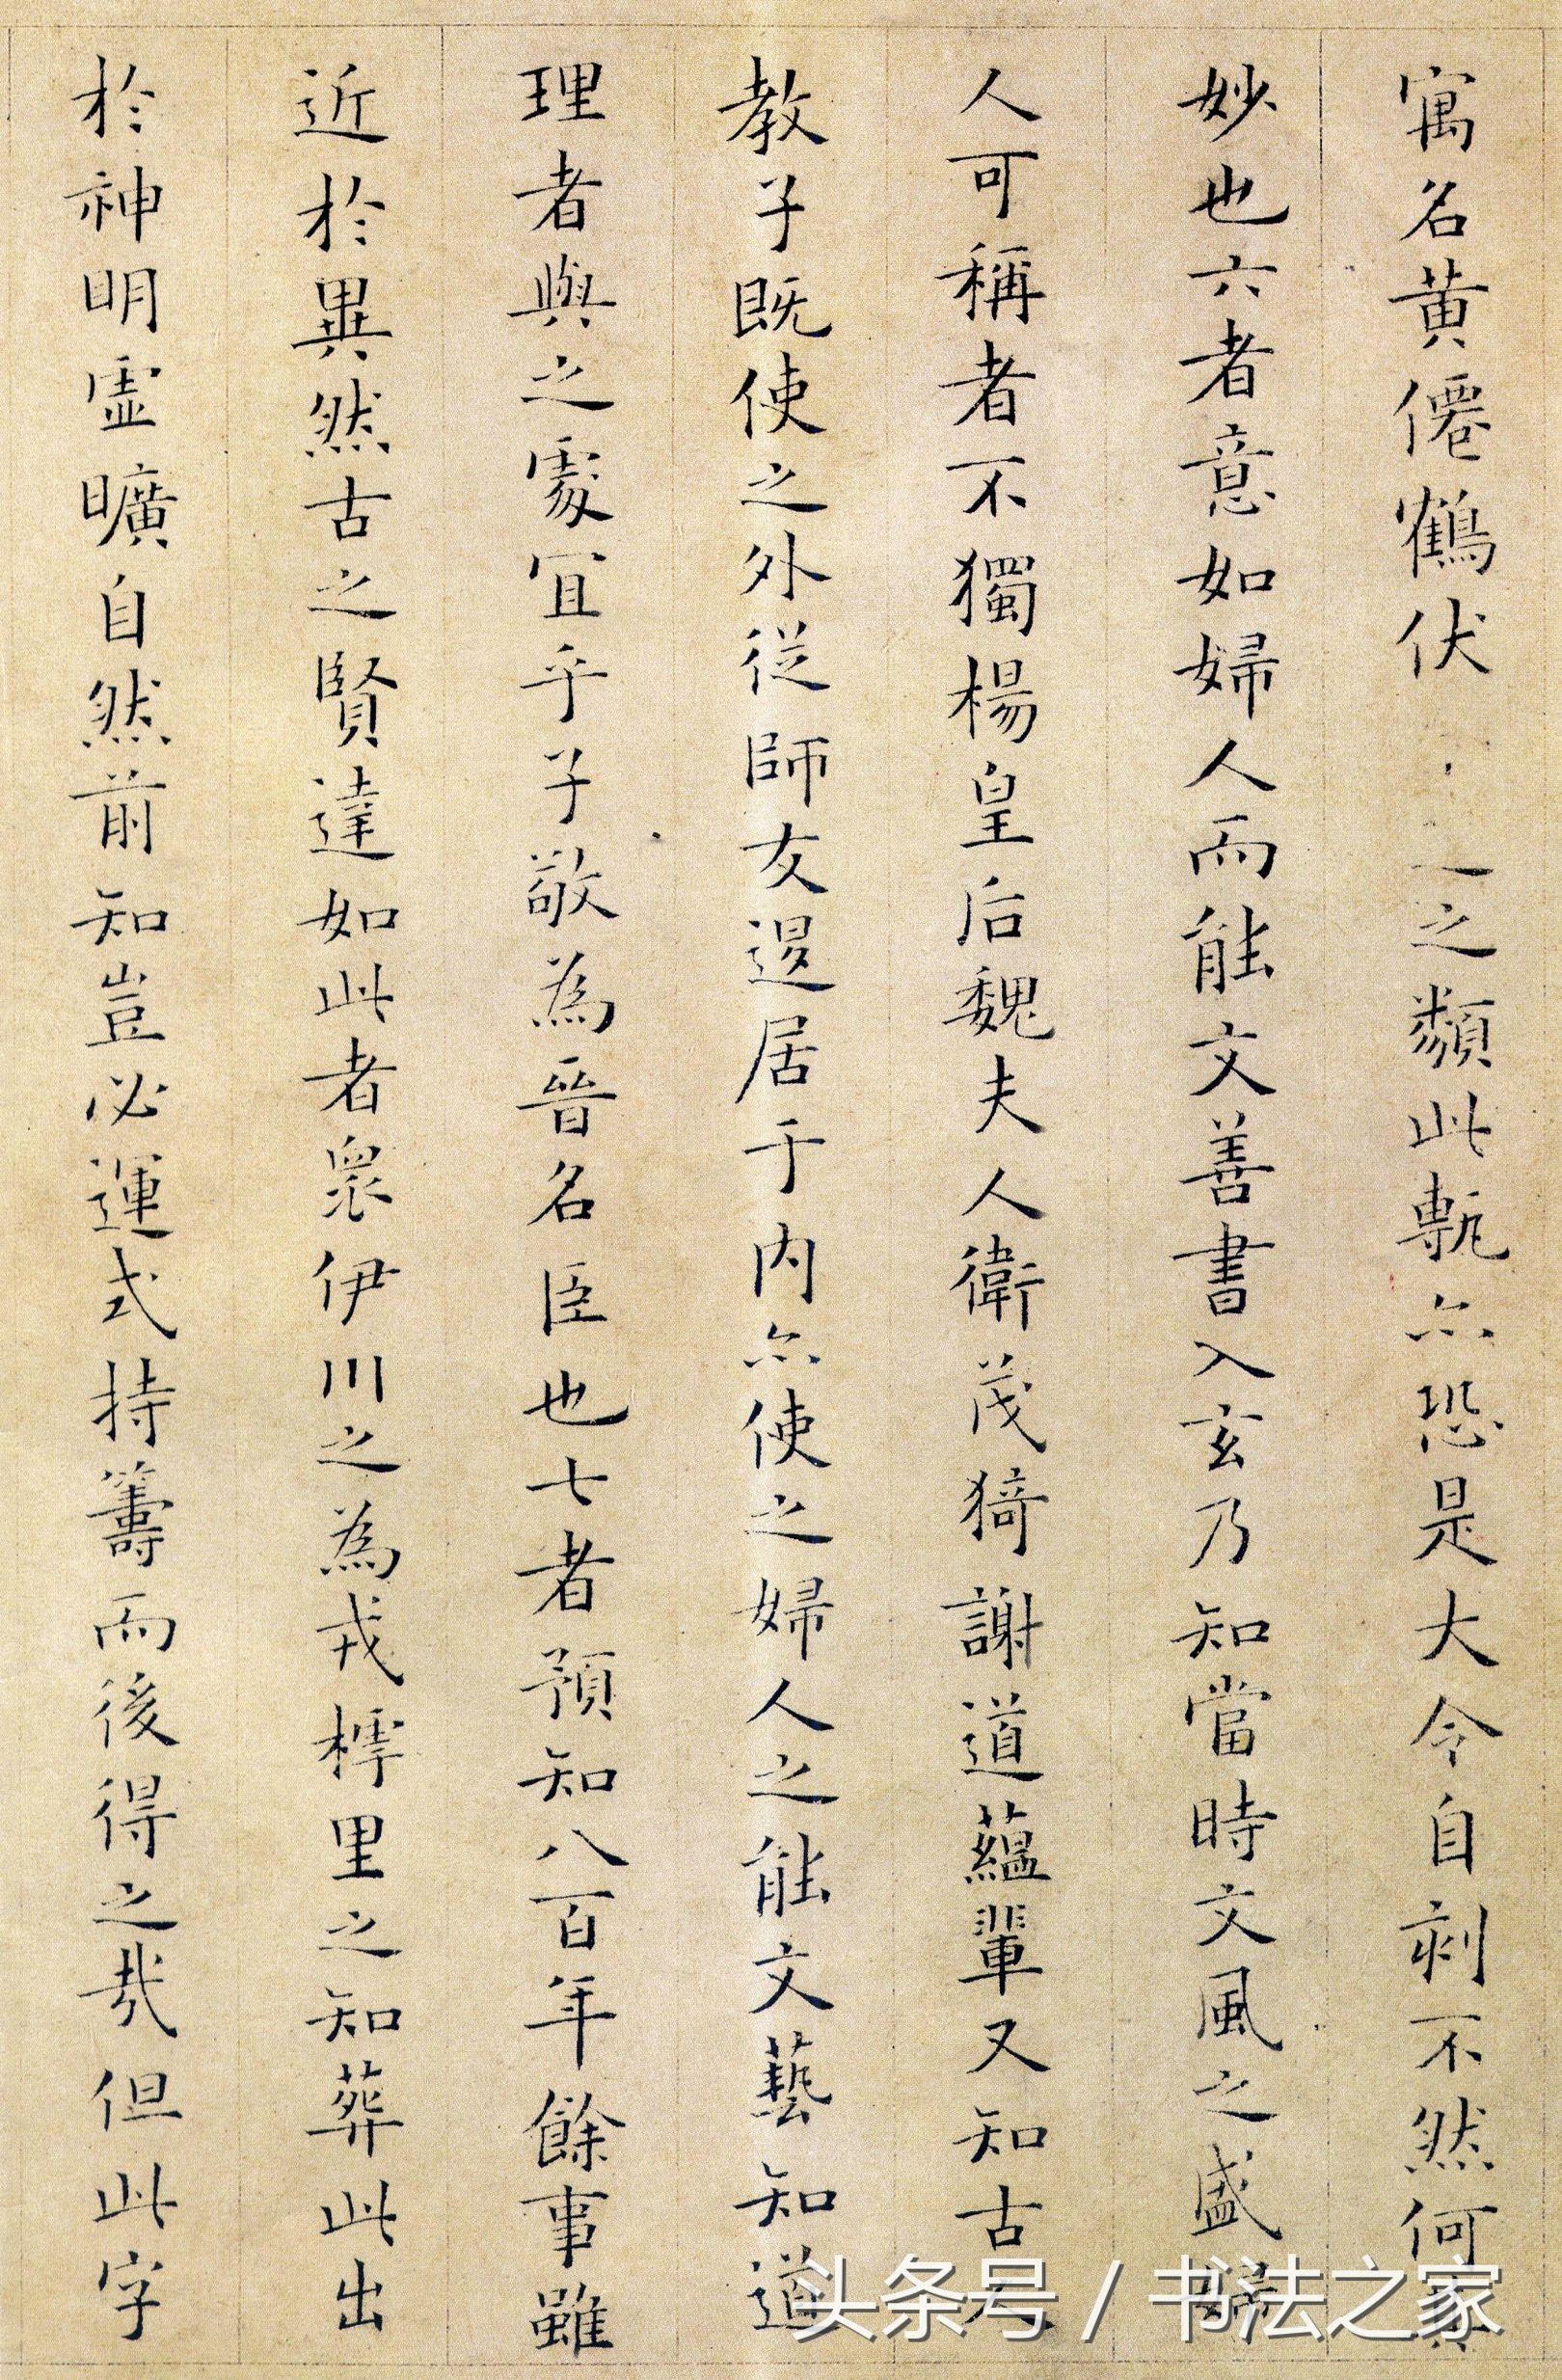 寓名黄僊鶴伏之類此甎亦恐是大令自刻不然何
妙也六者意如婦人而能文善書入玄乃知當時文風之盛婦
人可稱者不獨楊皇后魏夫人衛茂猗謝道蘊輩又知古
教子既使之外從師友退居于内亦使之婦人之能文藝知道
理者與之處宜乎子敬為晉名臣也七者預知八百年餘事雖
近於異然古之賢達如此者衆伊川之為戎樗里之知葬此出
於神明虚曠自然前知豈必運式持籌而後得之哉但此字
头条号 / 书法之家